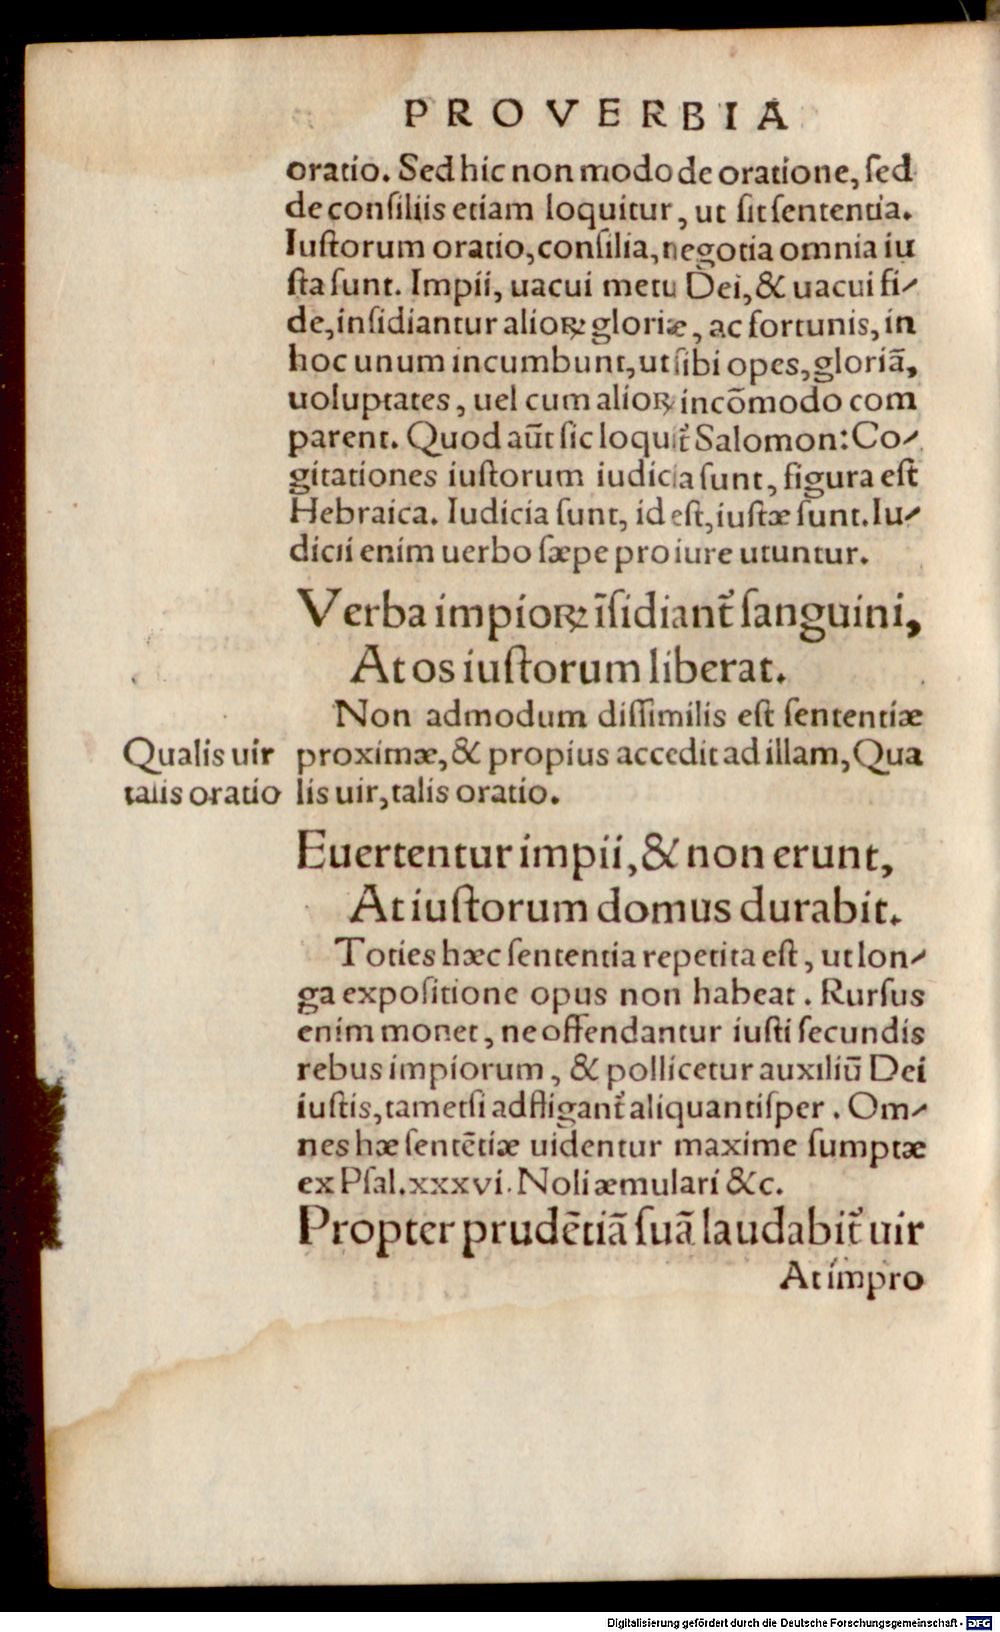 PROVERBIA
oratio. Sed hic non modo de oratione, ſed
de conſiliis etiam loquitur, ut ſit ſententia.
Iuſtorum oratio, conſilia, negotia omnia iu
ſta ſunt. Impii, uacui metu Dei, & uacui fi-
de, inſidiantur alioꝝ gloriæ, ac fortunis, in
hoc unum incumbunt, ut ſibi opes, gloriā,
uoluptates, uel cum alioꝝ incōmodo com
parent. Quod aūt ſic loquit᷑ Salomon: Co-
gitationes iuſtorum iudicia ſunt, figura eſt
Hebraica. Iudicia ſunt, id eſt, iuſtæ ſunt. Iu-
dicii enim uerbo ſæpe pro iure utuntur.
Verba impioꝝ īſidiant᷑ ſanguini,
At os iuſtorum liberat.
Non admodum diſſimilis eſt ſententiæ
proximæ, & propius accedit ad illam, Qua
lis uir, talis oratio.
Qualis uir
talis oratio
Euertentur impii, & non erunt,
At iuſtorum domus durabit.
Toties hæc ſententia repetita eſt, ut lon-
ga expoſitione opus non habeat. Rurſus
enim monet, ne offendantur iuſti ſecundis
rebus impiorum, & pollicetur auxiliū Dei
iuſtis, tametſi adfligant᷑ aliquantiſper. Om-
nes hæ ſentētiæ uidentur maxime ſumptæ
ex Pſal. xxxvi. Noli æmulari &c.
Propter prudētiā ſuā laudabit᷑ uir
At impro
Digitalisierung gefördert durch die Deutsche Forschungsgemeinschaft - DFG